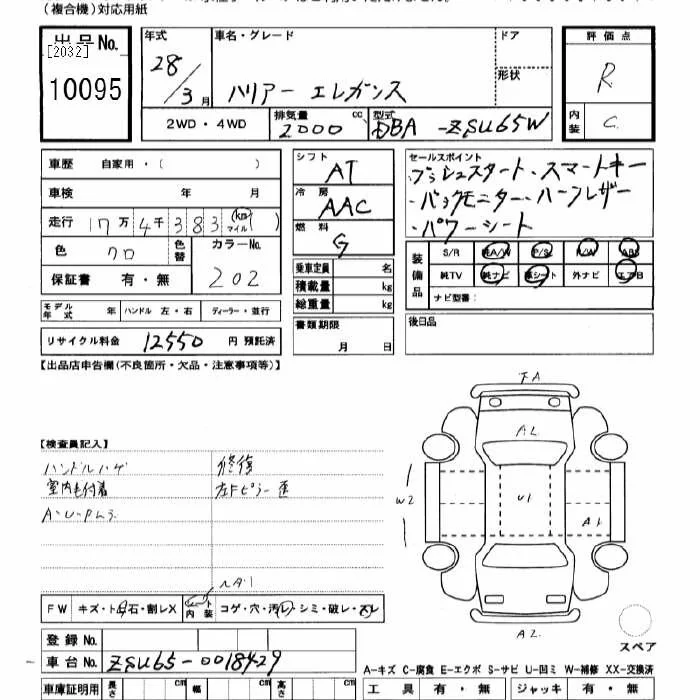 （複合機）対応用紙
出品No.
[2032]
10095
年式 28/3月
車名・グレード
ハリアー エレガンス
ドア
形状
2WD・4WD
排気量 2000 cc
型式 DBA-ZSU65W
評価点
R
内装 C
車歴 自家用・( )
車検 年 月
走行 17万4千383 (km マイル)
色 クロ
色替
カラーNo.
202
保証書 有・無
モデル年式 年 ハンドル 左・右 ディーラー・並行
リサイクル料金 12550 円 預託済
シフト AT
冷房 AAC
燃料 G
乗車定員 名
積載量 kg
総重量 kg
書類期限
月 日
セールスポイント
・プッシュスタート・スマートキー
・バックモニター・ハーフレザー
・パワーシート
装備品
S/R 純A/W P/S P/W ABS
純TV 純ナビ 革シート 外ナビ エアB
ナビ型番：
後日品
【出品店申告欄(不良箇所・欠品・注意事項等)】
【検査員記入】
ハンドルハゲ
室内毛付着
A・U・Pムラ
修復
左Fピラー歪
FA
AL
U1
W2
A1
A2
スペア
FW キズ・ト
石・割レX
内装
コゲ・穴・汚レ・シミ・破レ・スレ
登録No.
車台No. ZSU65-0018429
車庫証明用 長さ cm 幅 cm 高さ cm
A-キズ C-腐食 E-エクボ S-サビ U-凹ミ W-補修 XX-交換済
工具 有・無 ジャッキ 有・無